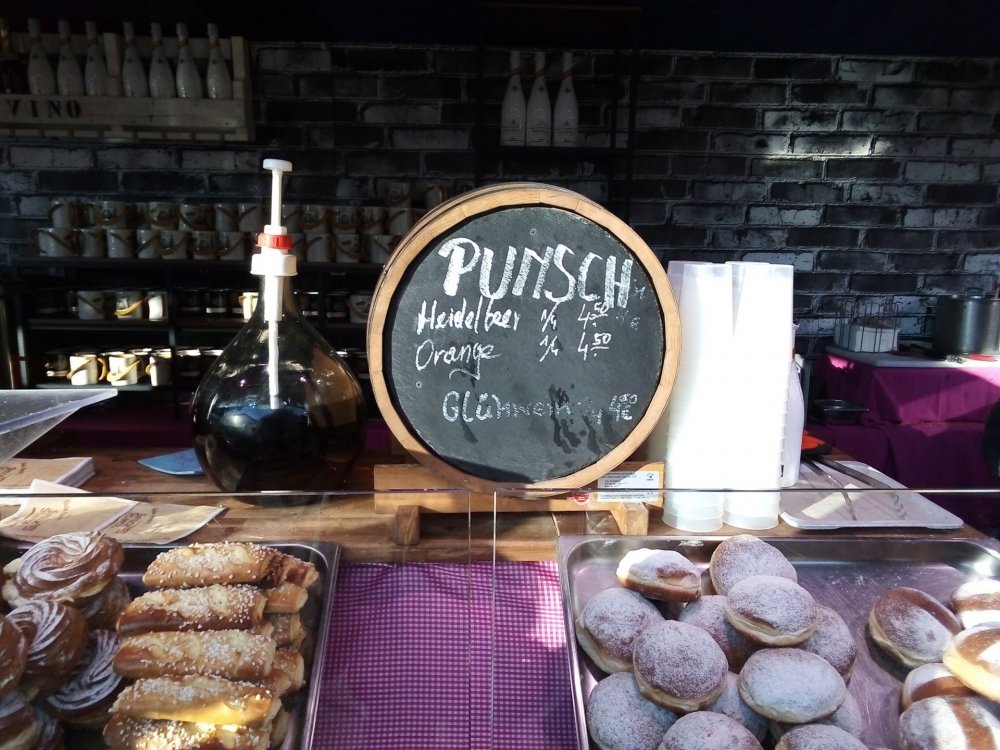 VINO
PUNSCH
Heidelbeer 1/4 4.50
Orange 1/4 4.50
Glühwein 4.50 €